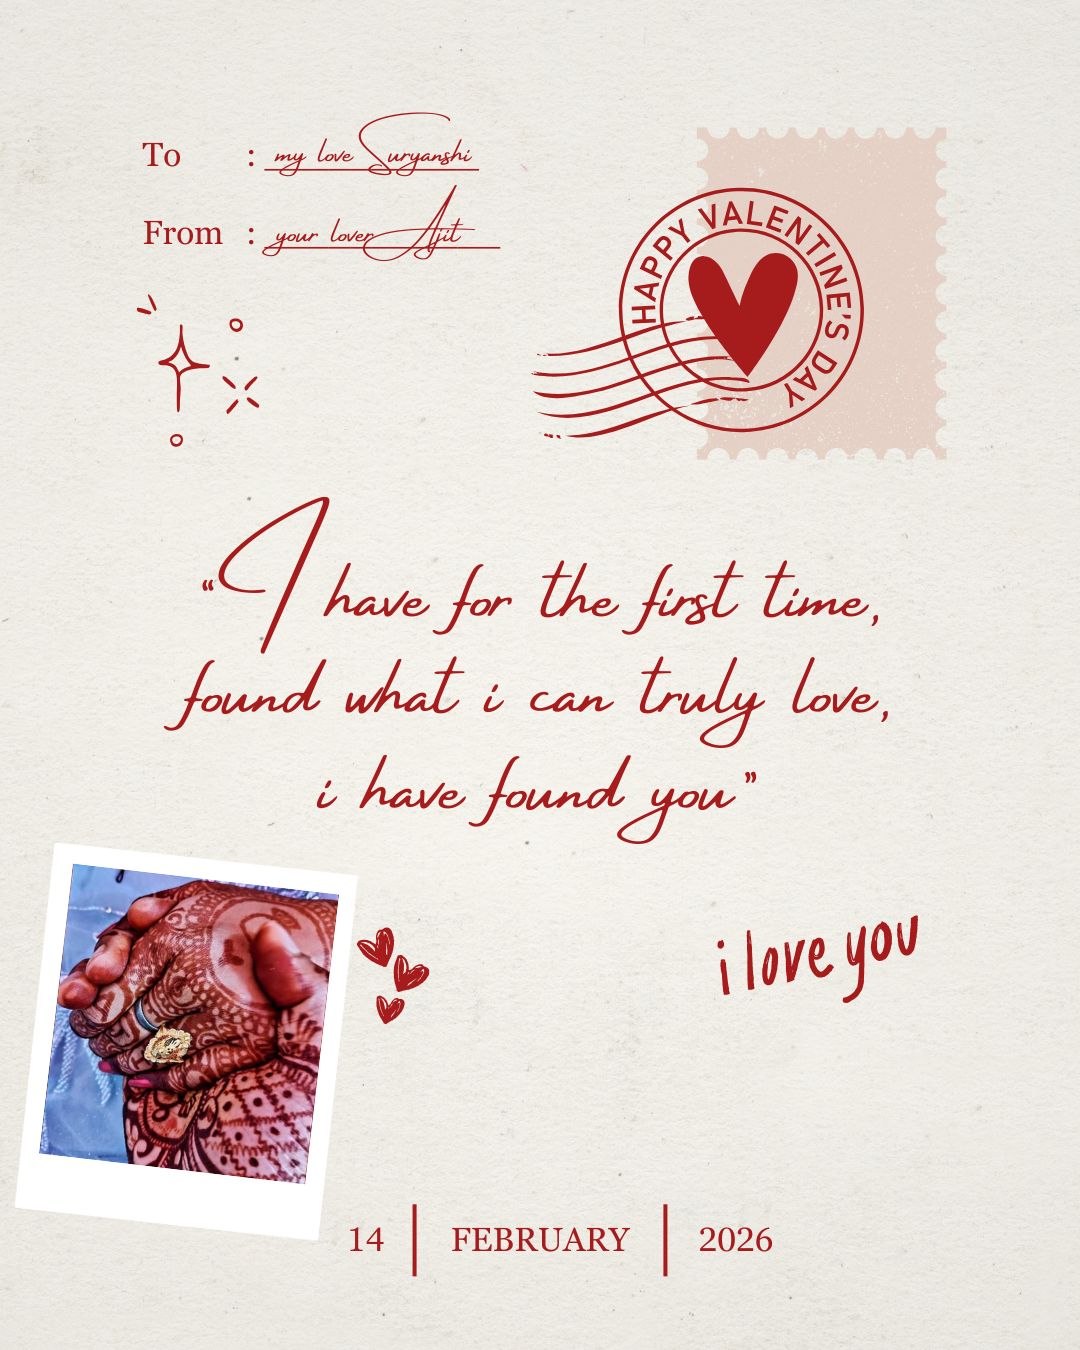 To : my love Suryanshi
From : your lover Ajit
HAPPY VALENTINE'S DAY
“I have for the first time,
found what i can truly love,
i have found you”
i love you
14 | FEBRUARY | 2026